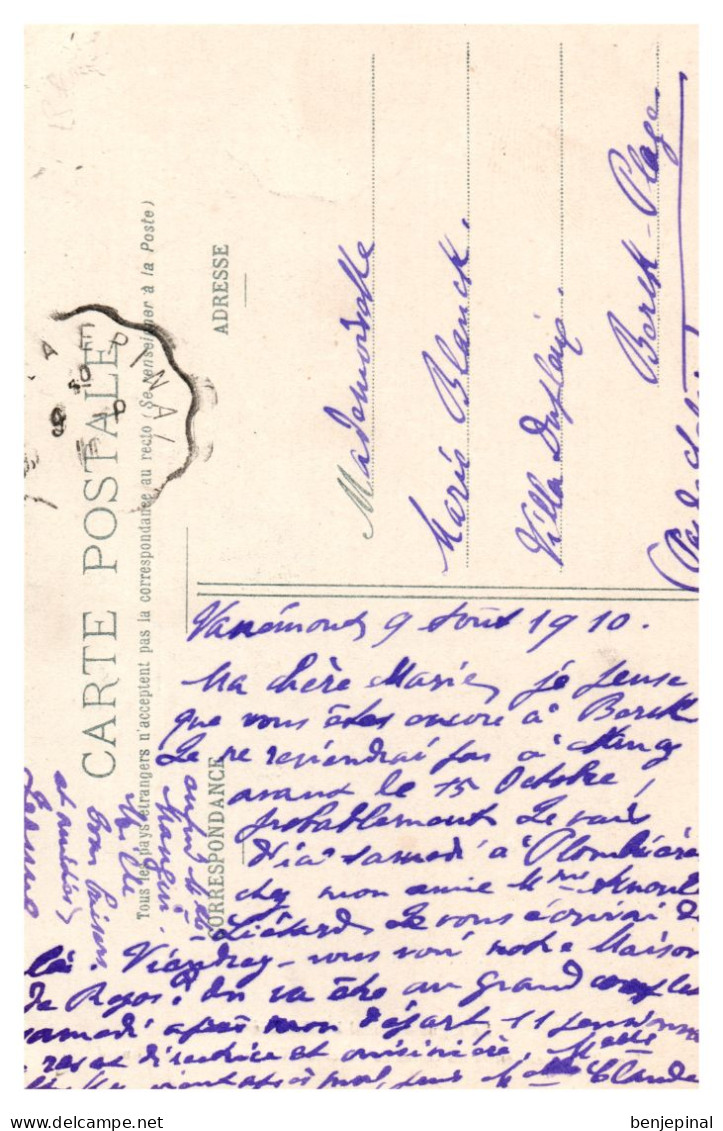 CARTE POSTALE
Tous les pays étrangers n'acceptent pas la correspondance au recto (Se renseigner à la Poste)
CORRESPONDANCE
ADRESSE
EPINAL
Mademoiselle
Marie Blanck.
Villa
Berck-Plage.
9 Août 1910.
Ma chère Marie, je pense
que vous êtes encore à Berck
Je ne reviendrai pas à
avant le 15 Octobre,
probablement. Je vais
d'ici samedi à Plombières
chez mon amie Mme
Liétard. Je vous écrirai de
là. Viendrez-vous voir notre Maison
de Repos? On va être au grand complet
samedi après mon départ, 11 pension
res et directrice et cuisinière. Melle
Claude
bon baiser
et amitiés
benjepinal